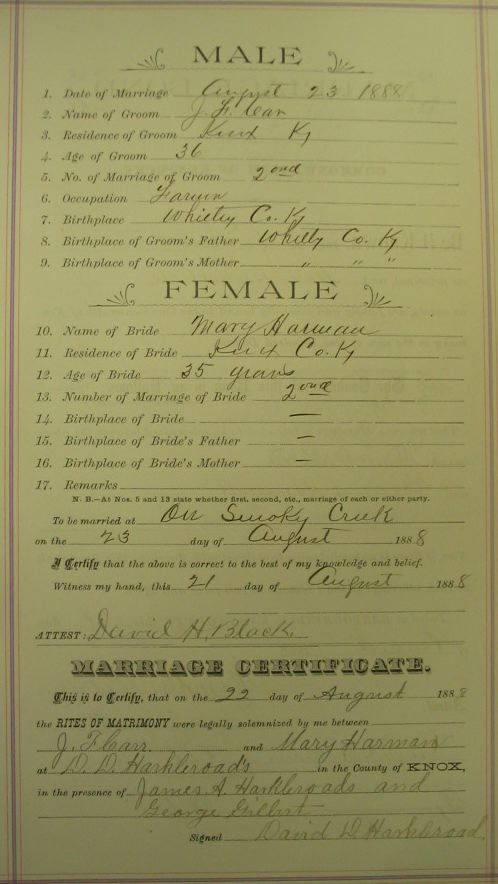 MALE
1. Date of Marriage August 23 1888
2. Name of Groom J. F. Carr
3. Residence of Groom Knox Ky
4. Age of Groom 36
5. No. of Marriage of Groom 2ond
6. Occupation Farmin
7. Birthplace Whitley Co. Ky
8. Birthplace of Groom's Father Whitly Co. Ky
9. Birthplace of Groom's Mother " " "
FEMALE
10. Name of Bride Mary Harman
11. Residence of Bride Knox Co. Ky
12. Age of Bride 35 years
13. Number of Marriage of Bride 2ond
14. Birthplace of Bride —
15. Birthplace of Bride's Father —
16. Birthplace of Bride's Mother —
17. Remarks
N. B.—At Nos. 5 and 13 state whether first, second, etc., marriage of each or either party.
To be married at On Smoky Creek
on the 23 day of August 1888
I Certify that the above is correct to the best of my knowledge and belief.
Witness my hand, this 21 day of August 1888
ATTEST: David H. Black
MARRIAGE CERTIFICATE.
This is to Certify, that on the 22 day of August 1888
the RITES OF MATRIMONY were legally solemnized by me between
J. F Carr and Mary Harman
at D. D. Harkleroad's in the County of KNOX,
in the presence of James A Harkleroads and
George Gilbert
Signed David D. Harkleroad